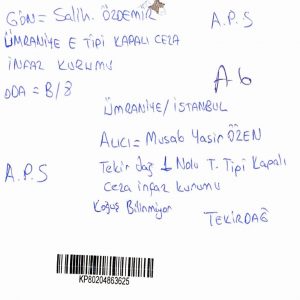 GÖN= Salih. ÖZDEMİR
A.P.S
ÜMRANİYE E TİPİ KAPALI CEZA
İNFAZ KURUMU
ODA = B/8
A6
ÜMRANİYE/İSTANBUL
ALICI= Musab Yasir ÖZEN
A.P.S
Tekir dağ 1 Nolu T. Tipi Kapalı
Ceza infaz kurumu
Koğuş Bilinmiyor
TEKİRDAĞ
KP80204863625